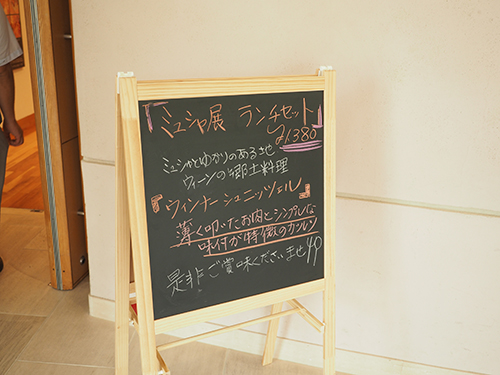 「ミュシャ展 ランチセット」
¥1,380
ミュシャとゆかりのある地
ウィーンの郷土料理
『ウィンナーシュニッツェル』
薄く叩いたお肉とシンプルな
味付が特徴のカツレツ
是非ご賞味くださいませ